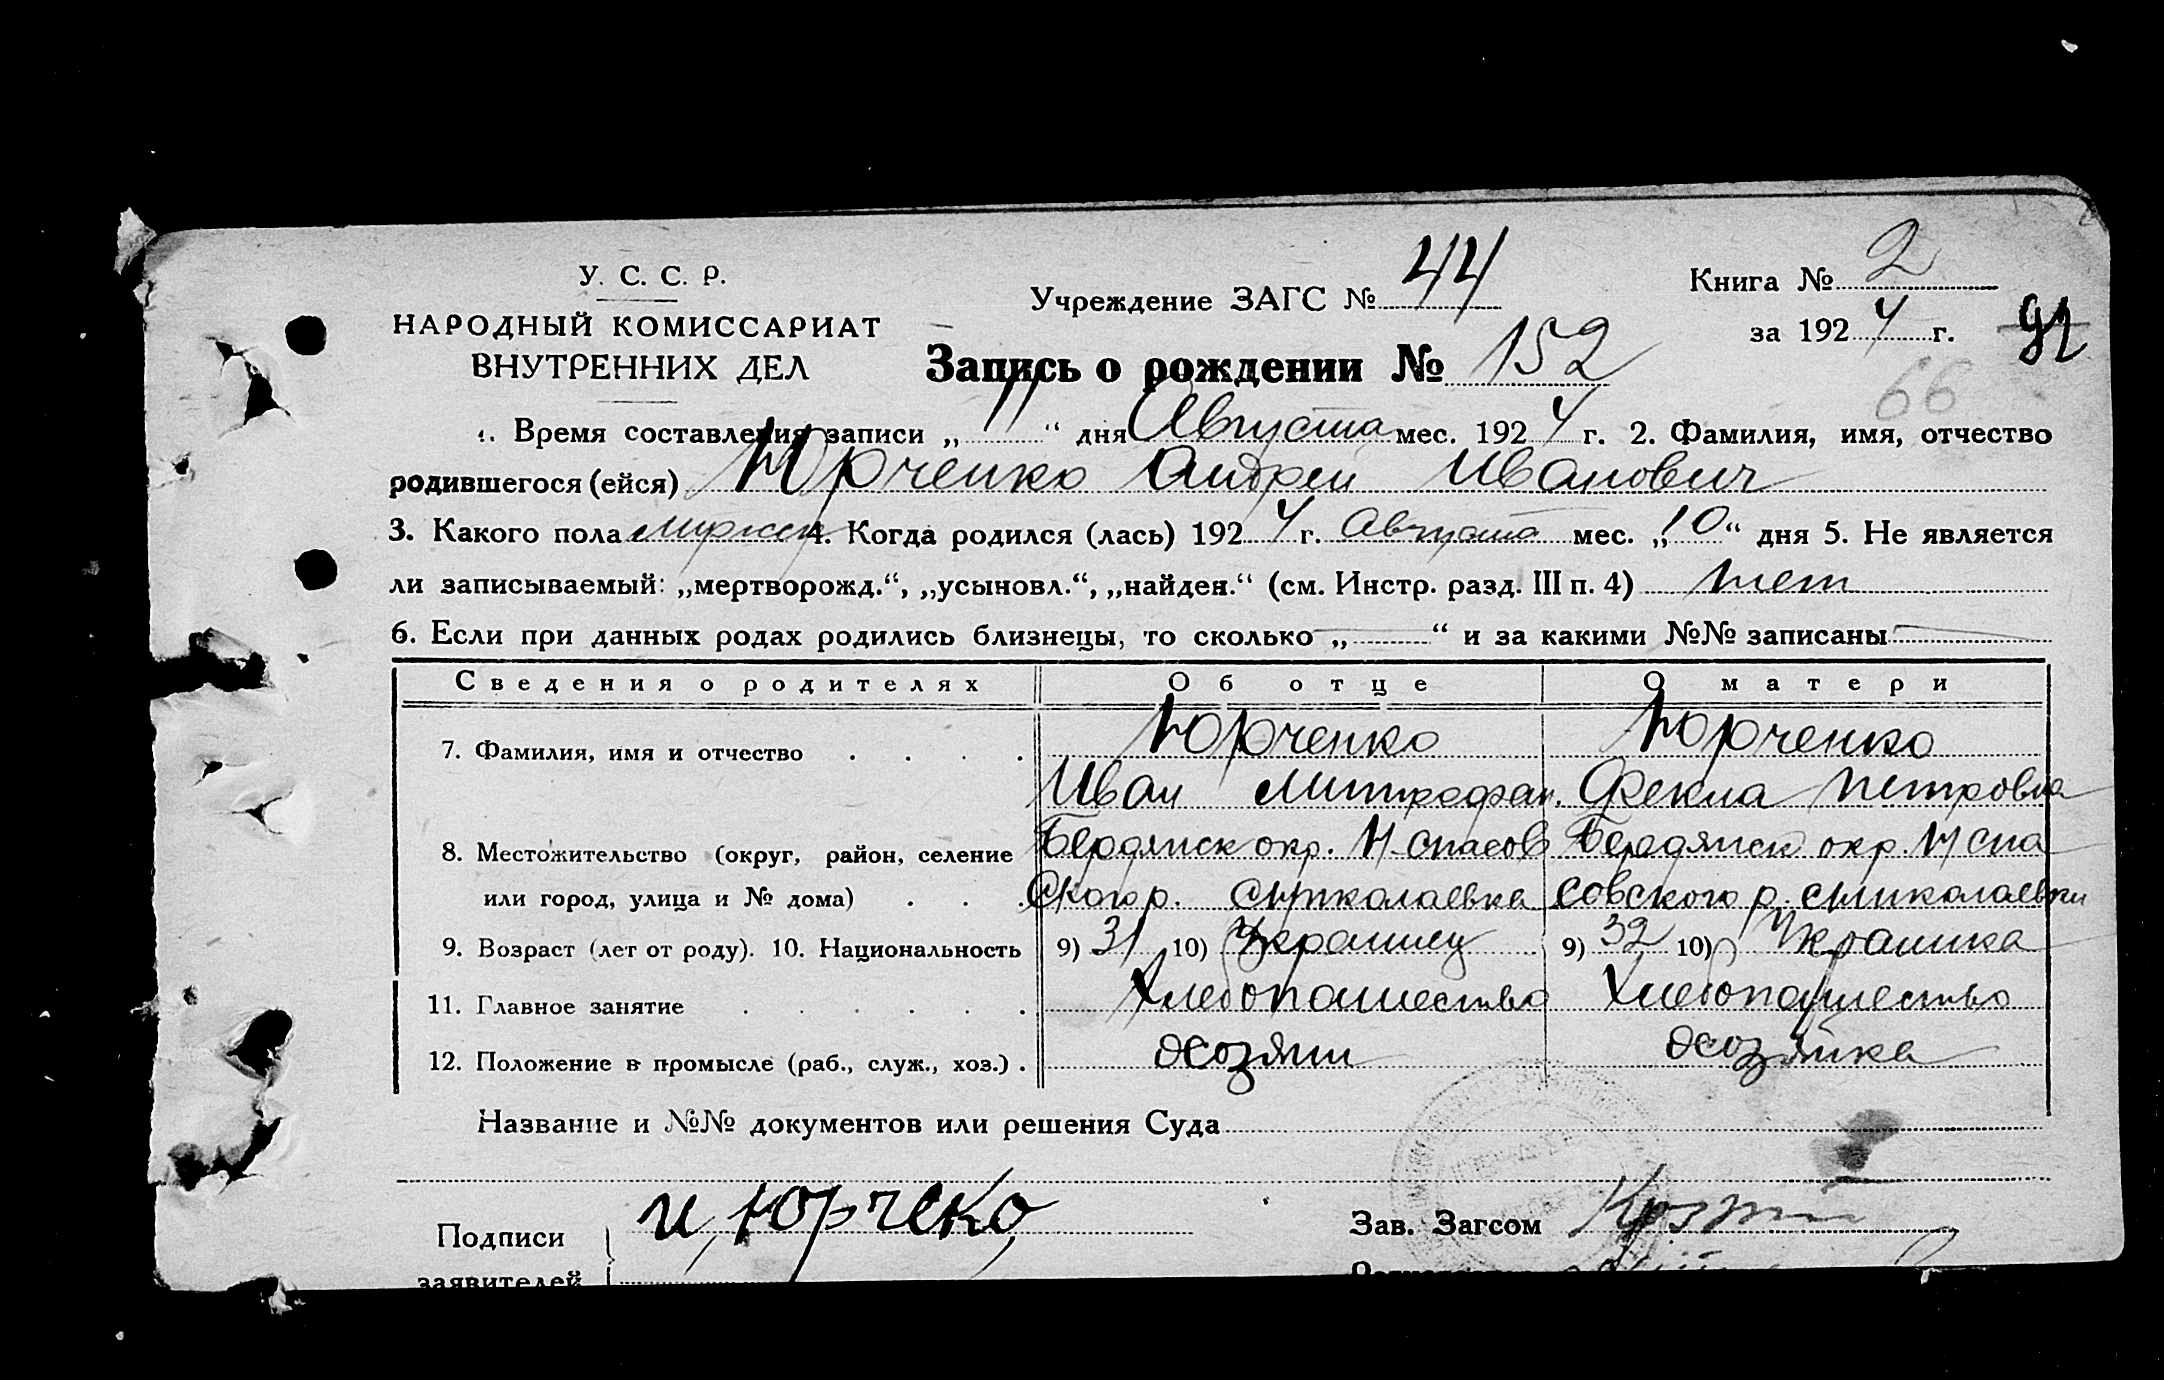 У. С. С. Р.
НАРОДНЫЙ КОМИССАРИАТ
ВНУТРЕННИХ ДЕЛ
Учреждение ЗАГС № 44
Книга № 2
за 1924 г.
92
66
Запись о рождении № 152
1. Время составления записи „11“ дня Августа мес. 1924 г. 2. Фамилия, имя, отчество
родившегося (ейся) Юрченко Андрей Иванович
3. Какого пола мужск 4. Когда родился (лась) 1924 г. Августа мес. „10“ дня 5. Не является
ли записываемый: „мертворожд.“, „усыновл.“, „найден.“ (см. Инстр. разд. III п. 4) нет
6. Если при данных родах родились близнецы, то сколько „—“ и за какими №№ записаны —
Сведения о родителях Об отце О матери
7. Фамилия, имя и отчество . . . . Юрченко Юрченко
Иван Митрофан. Фекла Петровна
8. Местожительство (округ, район, селение Бердянск окр. Н-спасов Бердянск окр. Н спа
или город, улица и № дома) . . . ского р. с. Николаевка совского р. с. Николаевки
9. Возраст (лет от роду). 10. Национальность 9) 31 10) Украинец 9) 32 10) Украинка
11. Главное занятие . . . . . . Хлебопашество Хлебопашество
12. Положение в промысле (раб., служ., хоз.) . хозяин хозяйка
Название и №№ документов или решения Суда
Подписи и Юрчеко
Зав. Загсом
заявителей